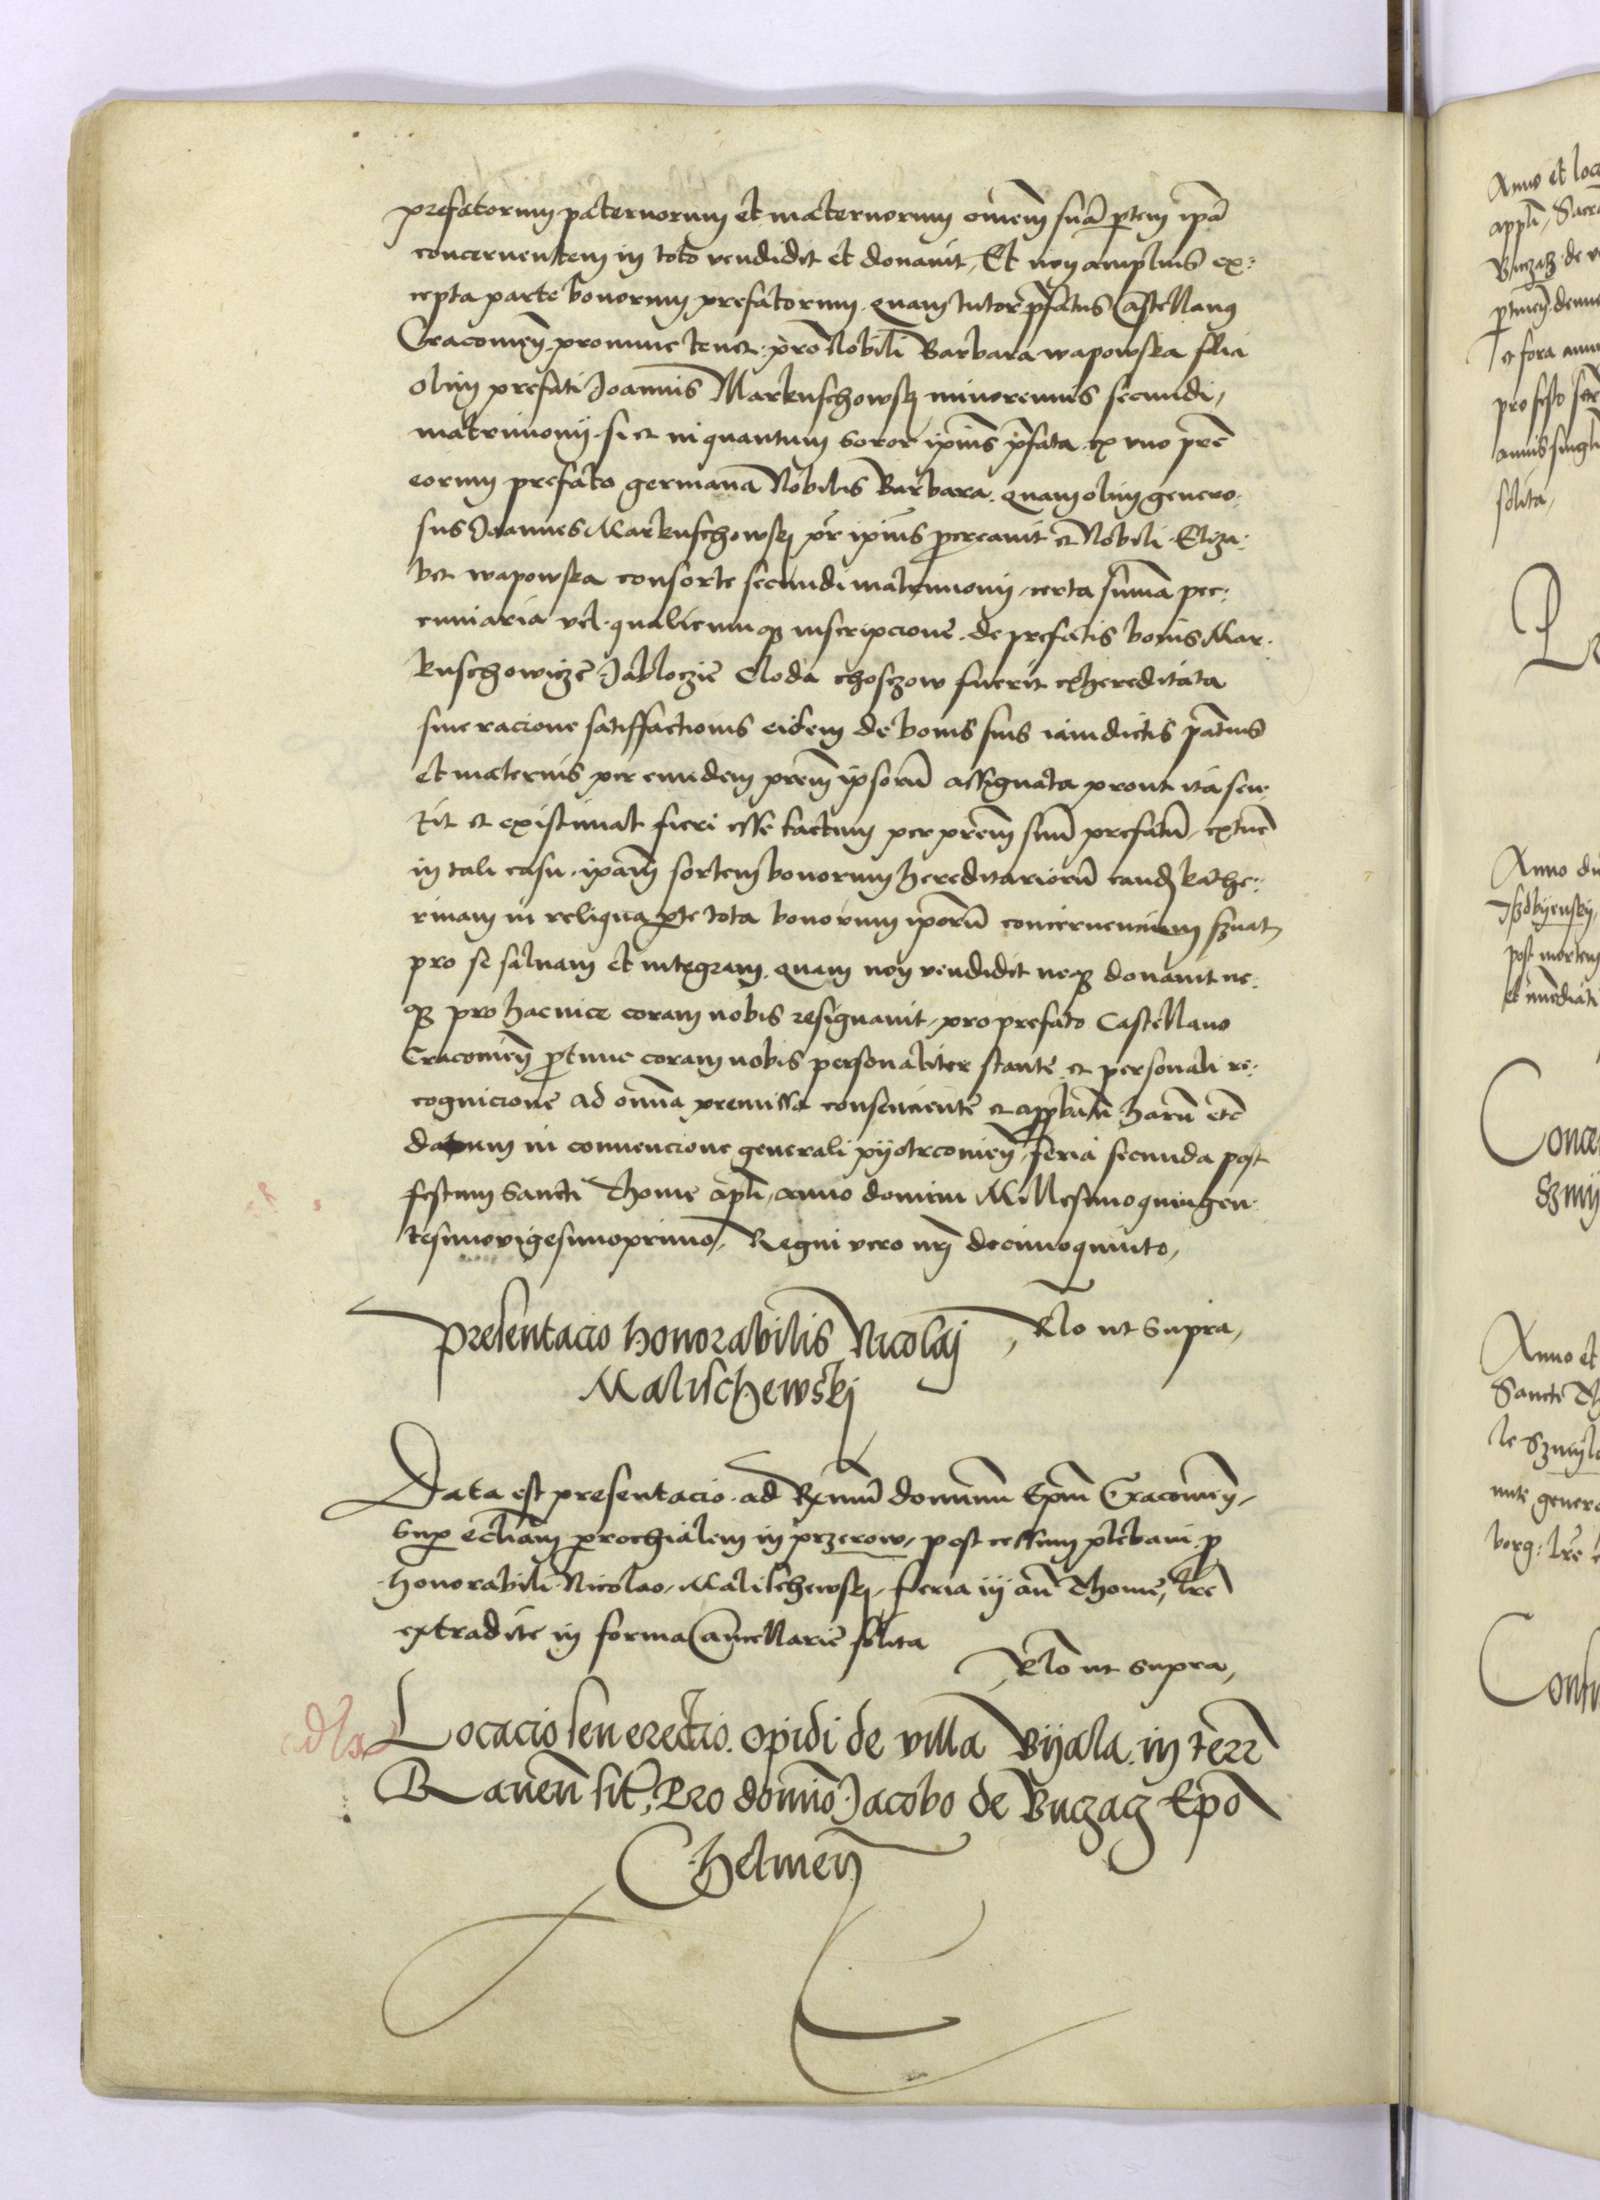 prefatorum paternorum et maternorum omem suã ptem ipã
concernentem in toto vendidit et donavit, Et non amplius ex:
cepta parte bonorum prefatorum quam tutor pfatus Castellanus
Cracovieñ pronunc tenet pro Nobili Barbara wapowska filia
olim prefati Joannis Markuschowskj minorennis secundi,
matrimonij si et inquantum soror ipius pfata ex uno pre
eorum prefato germana Nobilis Barbara quam olim genero:
sus Joannes Markuschowskj pr ipius procreavit et Nobili Eliza:
bet wapowska consorte secundi matrimonij, certa suma pec:
cuniaria vel qualicunqz inscripcione de prefatis bonis Mar:
kuschowicze Jabloczie Cloda choszow fuerit exhereditata
sine racione satisffactionis eidem de bonis suis iamdictis patnis
et maternis per eundem prem ipsoru assignata prout ita sen:
tit et existimat fieri esse factum per prem suu prefatu, extuc
in tali casu ipam sortem bonorum hereditarioru eand kathe:
rinam in reliqua pte tota bonorum iporu concernencium suat
pro se salvam et integram quam non vendidit neqz donavit ne:
qz pro hac vice coram nobis resignavit, pro prefato Castellano
Cracovieñ ptunc coram nobis personaliter stante et personali re:
cognicione ad omia premissa consenciente et approbate haru etc
datum in convencione generali pyotrcovieñ, feria secunda post
festum Sancti Thome apli, anno domini Millesimoquingen:
tesimovigesimoprimo, Regni vero nri decimoquinto,
Presentacio honorabilis Nicolaj , Rlo ut supra,
Malischewskj
Data est presentacio ad Rmum dominum Epm Cracovieñ,
sup eccliam parochialem in przerow, post cessum plebani p
honorabili Nicolao Malischewskj, feria iij añ Thome, lre
extradite in forma Cancellarie solita
Rlo ut supra,
Locacio seu erectio opidi de villa Byala in terr
Raveñ sit, Pro domino Jacobo de Buczacz Epo
Chelmeñ
Anno et loc
appli, Sacr
Buczacz de v
Et fora ann
pro festo
annis singli
solita,
Anno du
post mortem
et imediati
Conce
Szmy
Anno et
Sancti Th
le Szmyl
nute genero
borg: lre
Conf